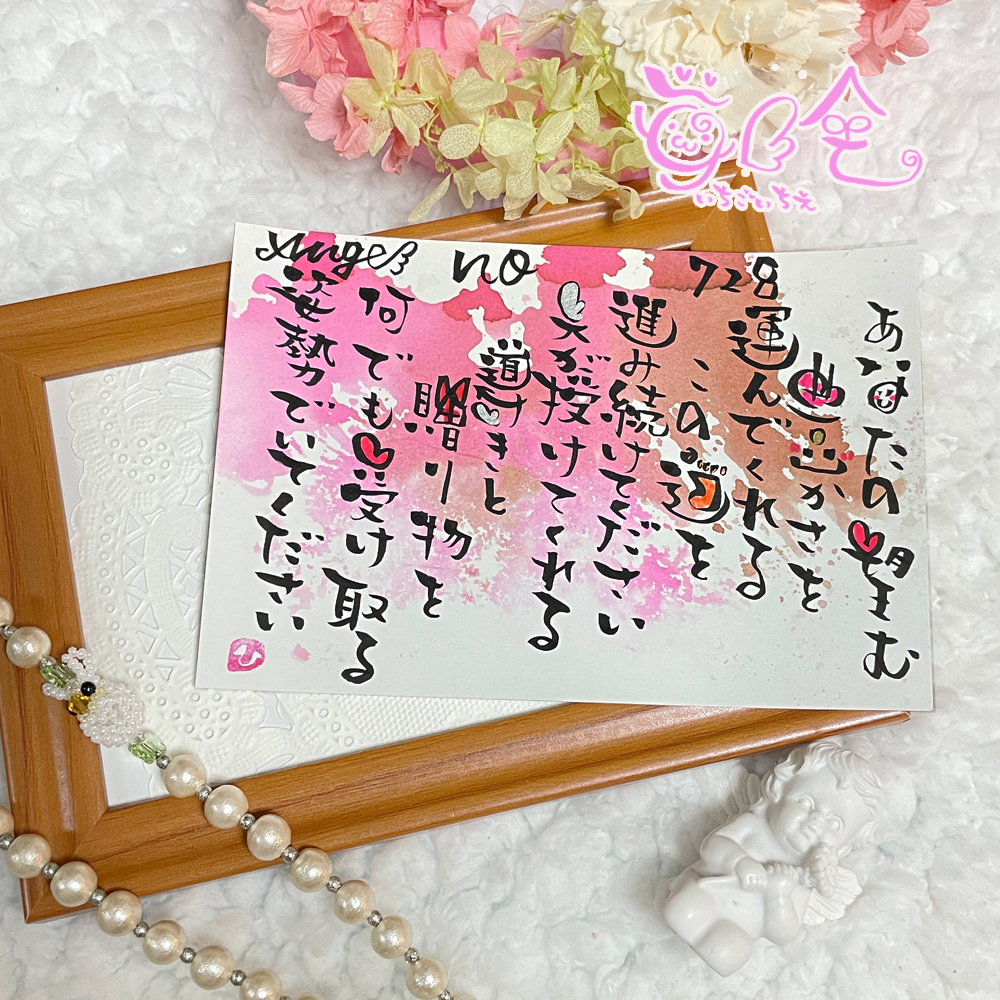 Angel no 728
あなたの望む
豊かさを
運んでくれる
この道を
進み続けてください
天が授けてくれる
導きと
贈り物を
何でも受け取る
姿勢でいてください
いちごいちえ